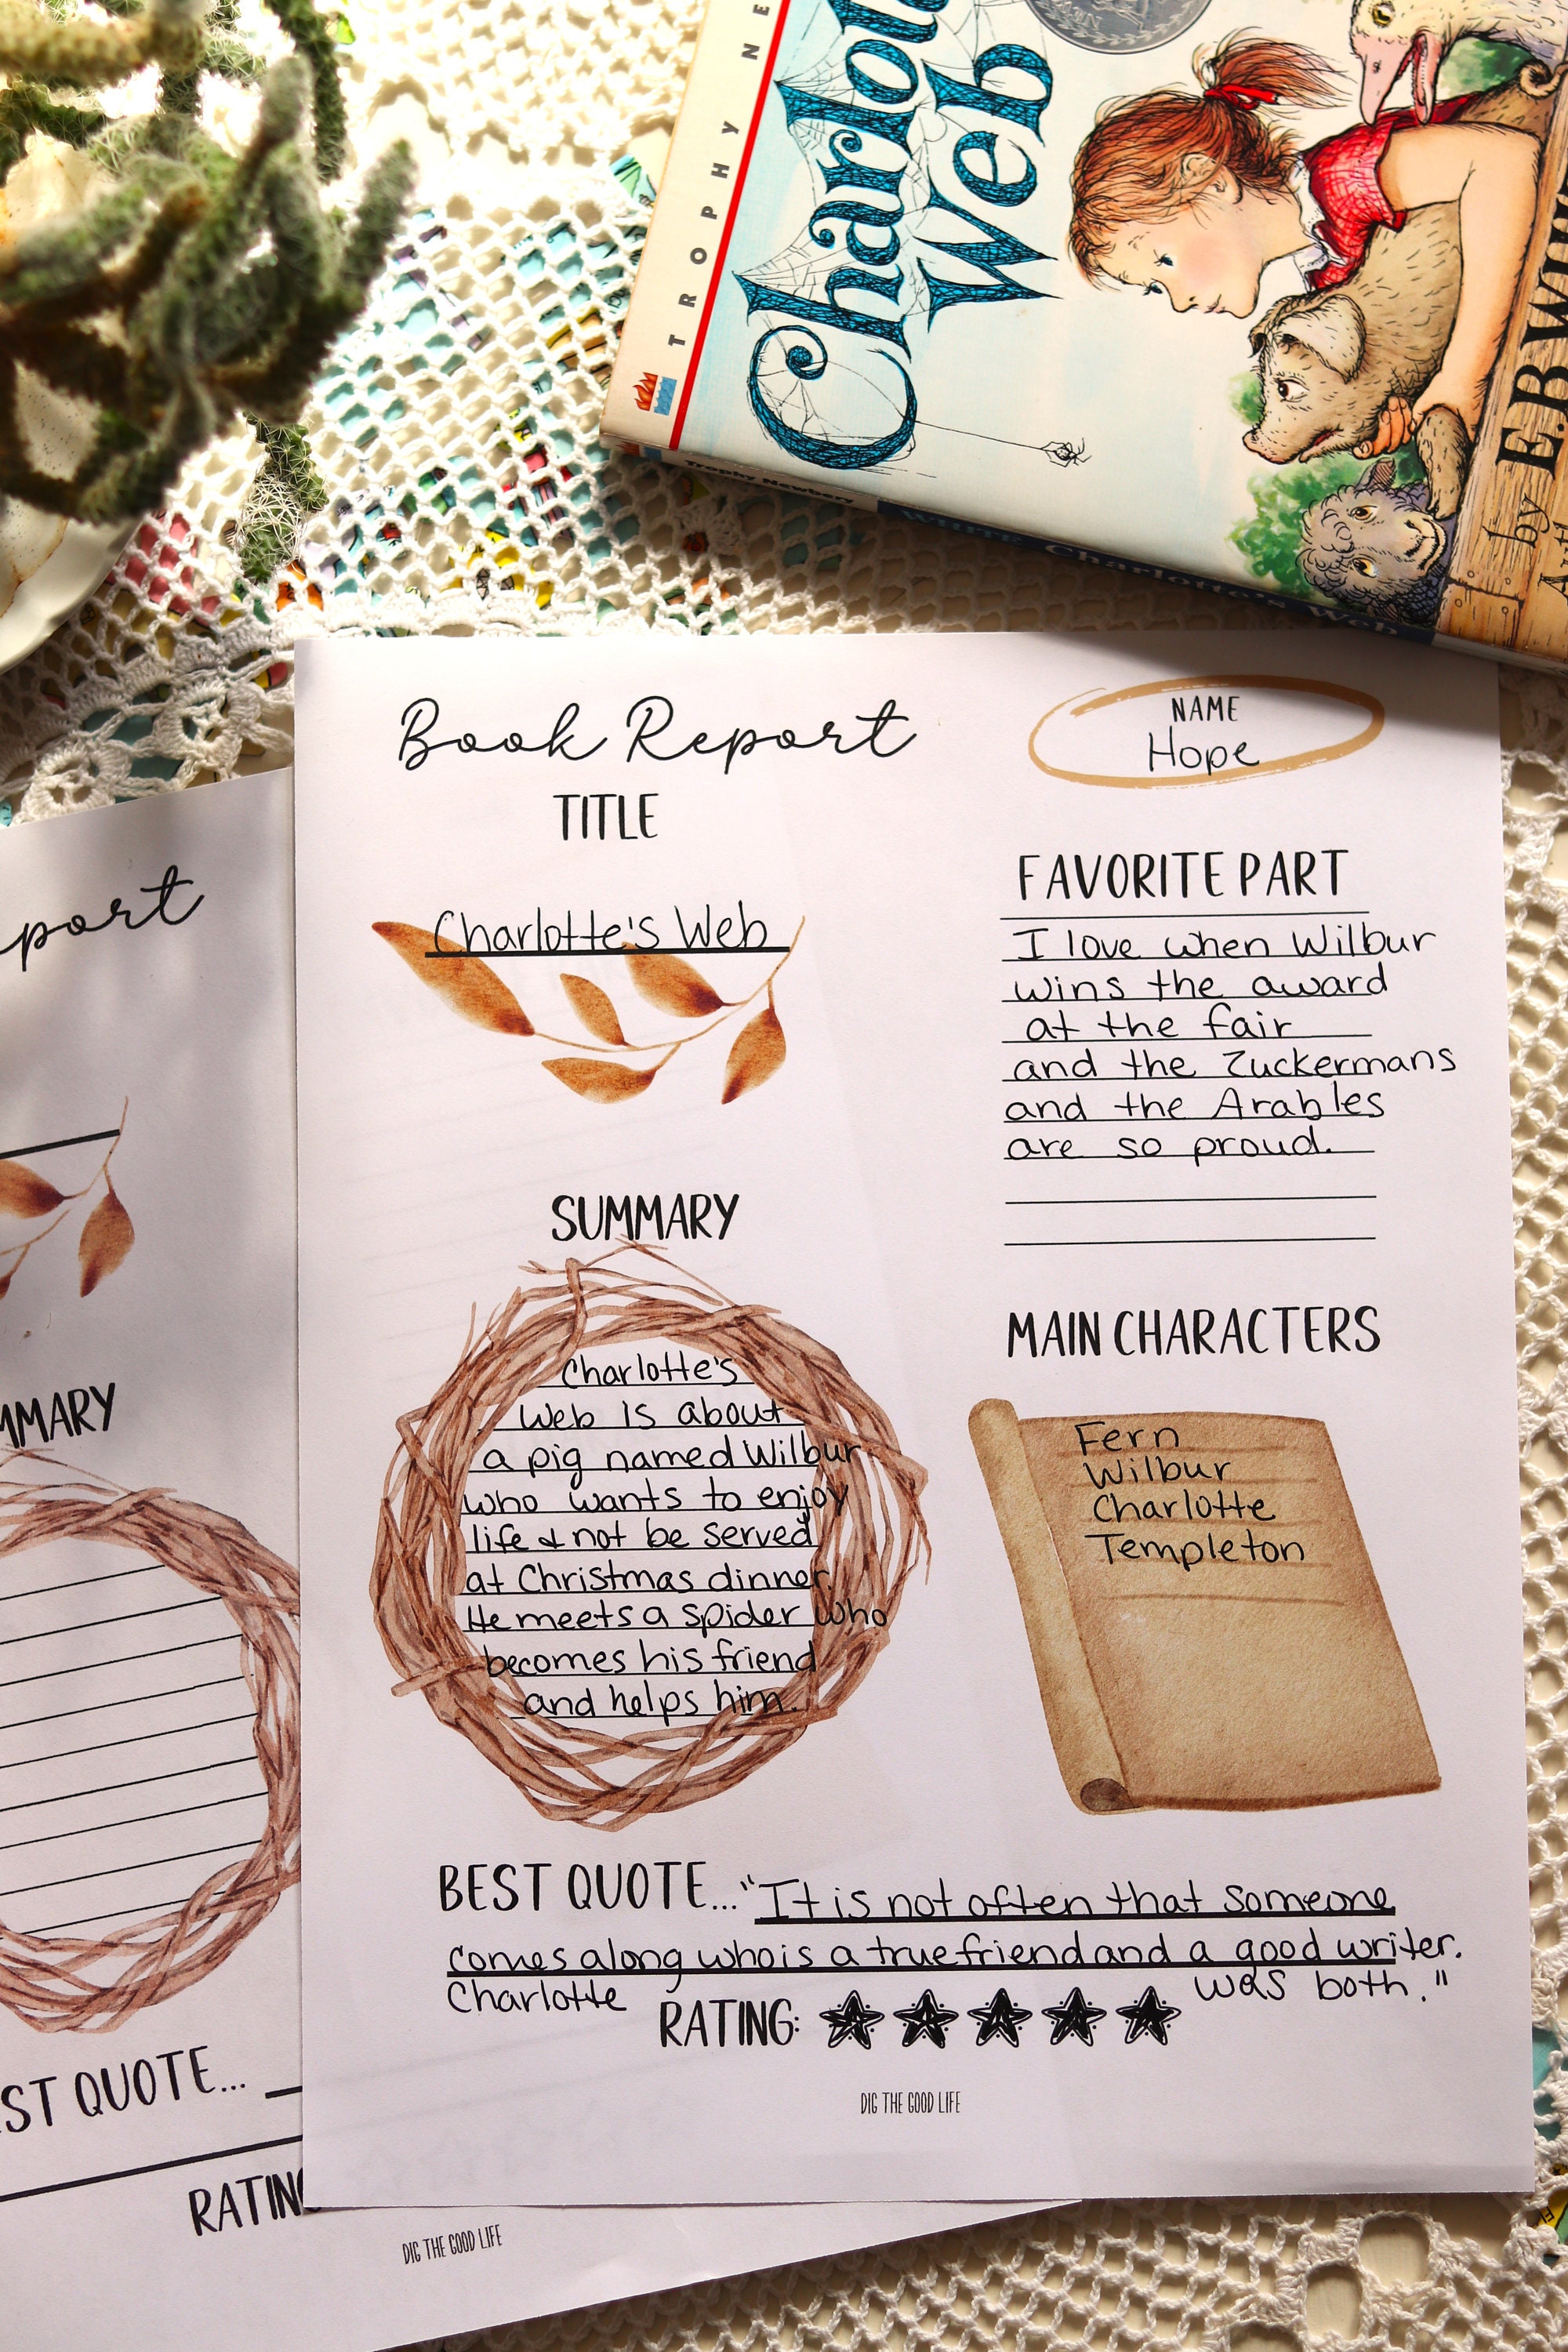 TROPHY NE
Charlo
Web
by E.B. Wh
Trophy Newbery
WHITE Charlotte's Web
Book Report
NAME
Hope
TITLE
Charlotte's Web
FAVORITE PART
I love when Wilbur
wins the award
at the fair
and the Zuckermans
and the Arables
are so proud.
SUMMARY
Charlotte's
Web is about
a pig named Wilbur
who wants to enjoy
life & not be served
at Christmas dinner.
He meets a spider who
becomes his friend
and helps him.
MAIN CHARACTERS
Fern
Wilbur
Charlotte
Templeton
BEST QUOTE... "It is not often that someone
comes along who is a true friend and a good writer.
Charlotte was both."
RATING:
DIG THE GOOD LIFE
port
MMARY
ST QUOTE...
RATING
DIG THE GOOD LIFE